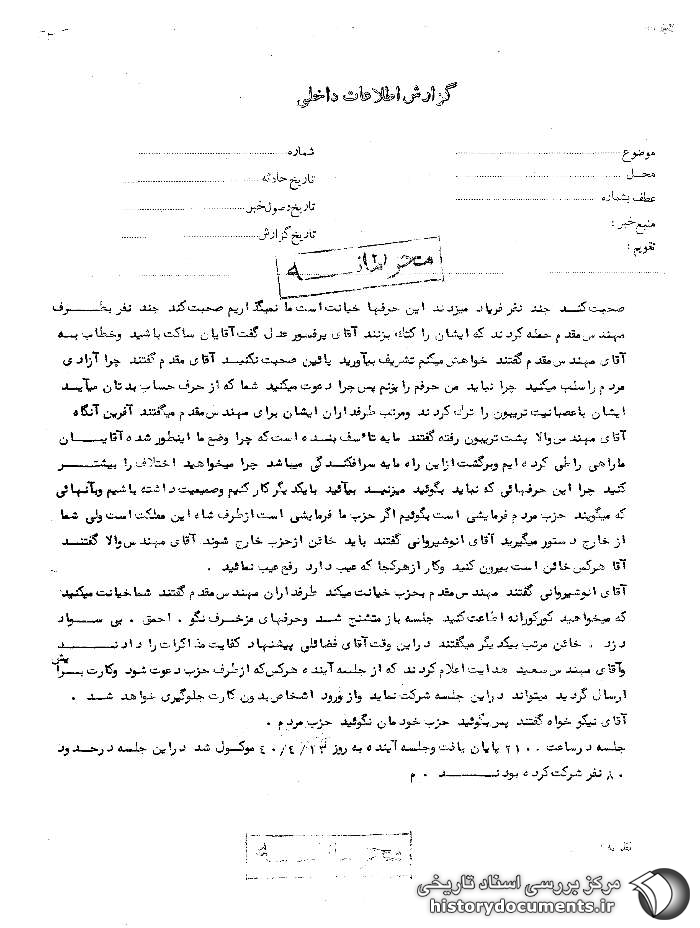 گزارش اطلاعات داخلی
موضوع
شماره
محل
تاریخ حادثه
عطف بشماره
تاریخ وصول خبر
منبع خبر :
تاریخ گزارش
تقویم :
صحبت کند جند نفر فریاد میزدند این حرفها خیانت است ما نمیگذاریم صحبت کند جند نفر بطرف
مهندس مقدم حمله کردند که ایشان را کتک بزنند آقای پرفسور عدل گفت آقایان ساکت باشید وخطاب به
آقای مهندس مقدم گفتند خواهش میکنم تشریف بیآورید پائین صحبت نکنید آقای مقدم گفتند چرا آزادی
مردم را سلب میکنید چرا نباید من حرفم را بزنم پس چرا دعوت میکنید شما که از حرف حساب بدتان میآید
ایشان باعصبانیت تریبون را ترک کردند ومرتب طرفداران ایشان برای مهندس مقدم میگفتند آفرین آنگاه
آقای مهندس والا پشت تریبون رفته گفتند مایه تاسف بنده است که چرا وضع ما اینطور شده آقایان
ماراهی را طی کرده ایم وبرگشت ازاین راه مایه سرافکندگی میباشد چرا میخواهید اختلاف را بیشتر
کنید چرا این حرفهائی که نباید بگوئید میزنید بیآئید بایکدیگر کار کنیم وصمیمیت داشته باشیم وبآنهائی
که میگویند حزب مردم فرمایشی است بگوئیم اگر حزب ما فرمایشی است ازطرف شاه این مملکت است ولی شما
از خارج دستور میگیرید آقای انوشیروانی گفتند باید خائن ازحزب خارج شوند آقای مهندس والا گفتند
آقا هرکس خائن است بیرون کنید وکار ازهرکجا که عیب دارد رفع عیب نمائید .
آقای انوشیروانی گفتند مهندس مقدم بحزب خیانت میکند طرفداران مهندس مقدم گفتند شما خیانت میکنید
که میخواهید کورکورانه اطاعت کنید جلسه باز متشنج شد وحرفهای مزخرف نگو . احمق . بی سواد
دزد . خائن مرتب بیکدیگر میگفتند دراین وقت آقای فضائلی پیشنهاد کفایت مذاکرات را دادند
وآقای مهندس سعید هدایت اعلام کردند که از جلسه آینده هرکس که ازطرف حزب دعوت شود وکارت برایش
ارسال گردید میتواند دراین جلسه شرکت نماید واز ورود اشخاص بدون کارت جلوگیری خواهد شد .
آقای نیکو خواه گفتند پس بگوئید حزب خودمان نگوئید حزب مردم .
جلسه درساعت ۲۱۰۰ پایان یافت وجلسه آینده به روز ۴۰/۴/۱۳ موکول شد دراین جلسه درحدود
۸۰ نفر شرکت کرده بودند . م
مرکز بررسی اسناد تاریخی
historydocuments.ir